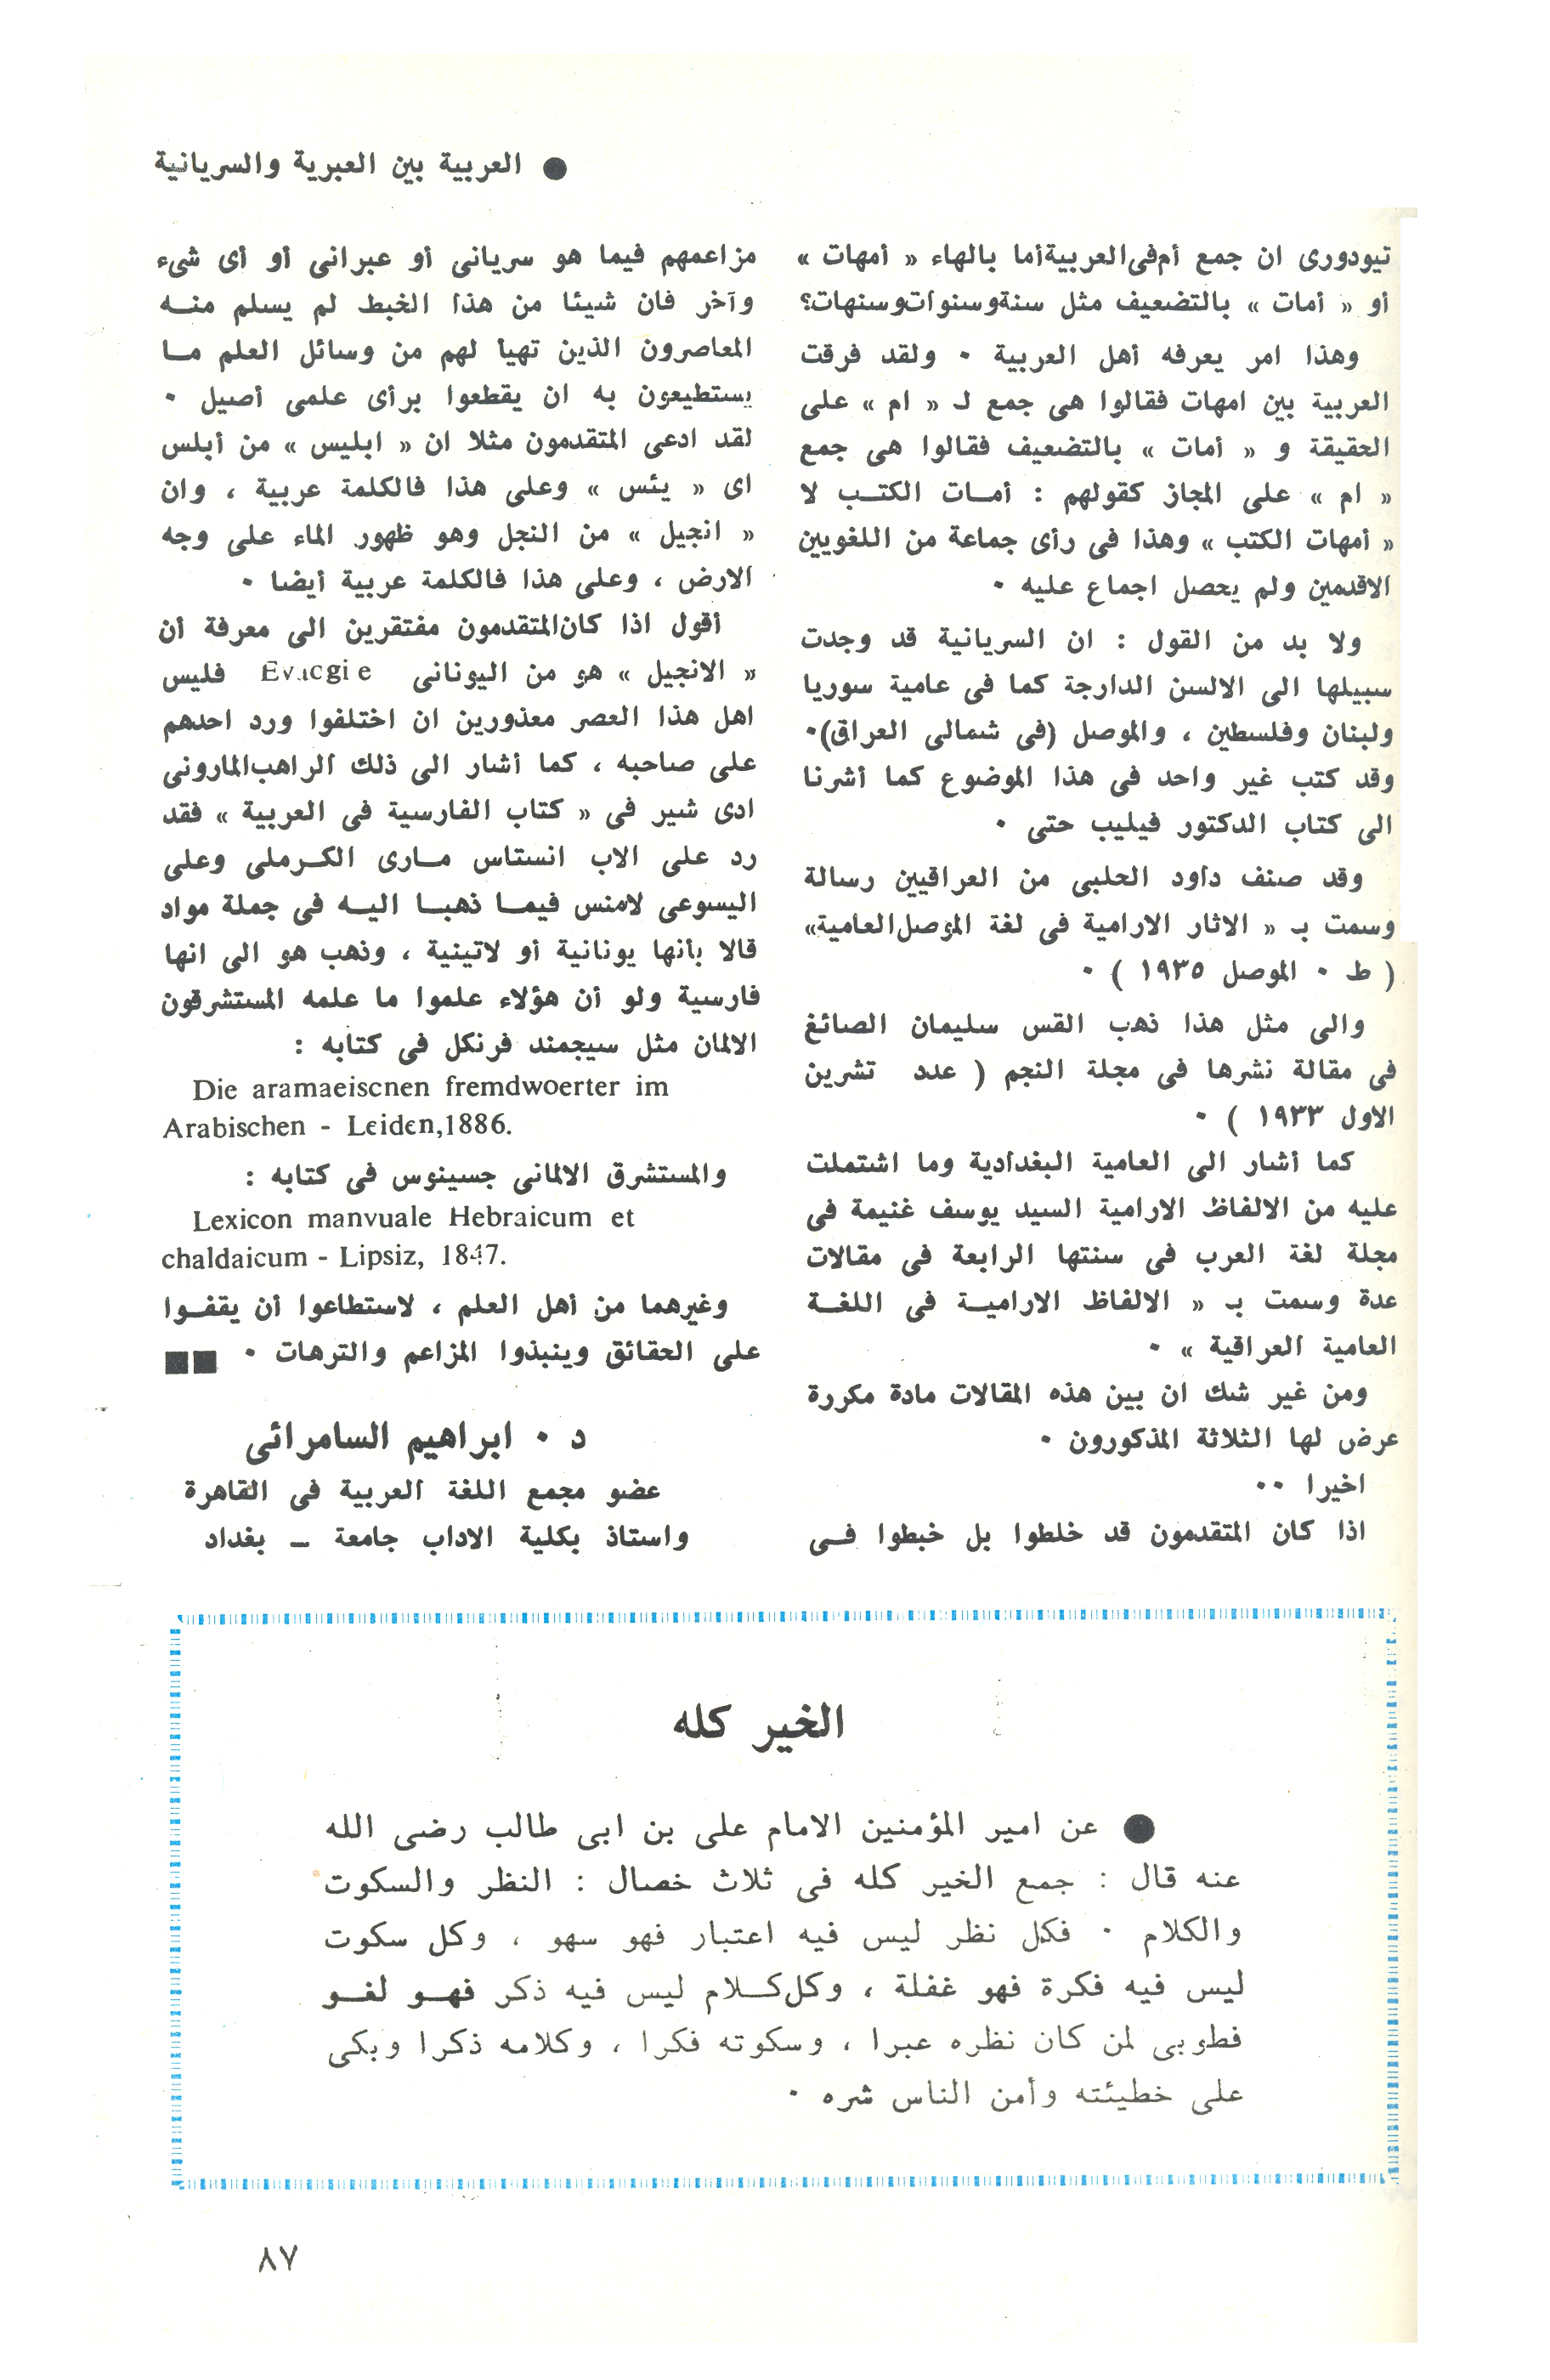 ● العربية بين العبرية والسريانية
تيودورى ان جمع أم فى العربية أما بالهاء « أمهات »
أو « أمات » بالتضعيف مثل سنة وسنوات وسنهات؟
وهذا امر يعرفه أهل العربية ٠ ولقد فرقت
العربية بين امهات فقالوا هى جمع لـ « ام » على
الحقيقة و « أمات » بالتضعيف فقالوا هى جمع
« ام » على المجاز كقولهم : أمات الكتب لا
« أمهات الكتب » وهذا فى رأى جماعة من اللغويين
الاقدمين ولم يحصل اجماع عليه ٠
ولا بد من القول : ان السريانية قد وجدت
سبيلها الى الالسن الدارجة كما فى عامية سوريا
ولبنان وفلسطين ، والموصل (فى شمالى العراق)٠
وقد كتب غير واحد فى هذا الموضوع كما أشرنا
الى كتاب الدكتور فيليب حتى ٠
وقد صنف داود الحلبى من العراقيين رسالة
وسمت بـ « الاثار الارامية فى لغة الموصل العامية»
( ط ٠ الموصل ١٩٣٥ ) ٠
والى مثل هذا ذهب القس سليمان الصائغ
فى مقالة نشرها فى مجلة النجم ( عدد تشرين
الاول ١٩٣٣ ) ٠
كما أشار الى العامية البغدادية وما اشتملت
عليه من الالفاظ الارامية السيد يوسف غنيمة فى
مجلة لغة العرب فى سنتها الرابعة فى مقالات
عدة وسمت بـ « الالفاظ الارامية فى اللغة
العامية العراقية » ٠
ومن غير شك ان بين هذه المقالات مادة مكررة
عرض لها الثلاثة المذكورون ٠
اخيرا ٠٠
اذا كان المتقدمون قد خلطوا بل خبطوا فى
مزاعمهم فيما هو سريانى أو عبرانى أو أى شىء
وآخر فان شيئا من هذا الخبط لم يسلم منه
المعاصرون الذين تهيأ لهم من وسائل العلم ما
يستطيعون به ان يقطعوا برأى علمى أصيل ٠
لقد ادعى المتقدمون مثلا ان « ابليس » من أبلس
اى « يئس » وعلى هذا فالكلمة عربية ، وان
« انجيل » من النجل وهو ظهور الماء على وجه
الارض ، وعلى هذا فالكلمة عربية أيضا ٠
أقول اذا كان المتقدمون مفتقرين الى معرفة أن
« الانجيل » هو من اليونانى فليس
اهل هذا العصر معذورين ان اختلفوا ورد احدهم
على صاحبه ، كما أشار الى ذلك الراهب المارونى
ادى شير فى « كتاب الفارسية فى العربية » فقد
رد على الاب انستاس مارى الكرملى وعلى
اليسوعى لامنس فيما ذهبا اليه فى جملة مواد
قالا بأنها يونانية أو لاتينية ، وذهب هو الى انها
فارسية ولو أن هؤلاء علموا ما علمه المستشرقون
الالمان مثل سيجمند فرنكل فى كتابه :
Die aramaeiscnen fremdwoerter im
Arabischen - Leiden,1886.
والمستشرق الالمانى جسينوس فى كتابه :
Lexicon manvuale Hebraicum et
chaldaicum - Lipsiz, 1847.
وغيرهما من أهل العلم ، لاستطاعوا أن يقفوا
على الحقائق وينبذوا المزاعم والترهات ٠ ■■
د ٠ ابراهيم السامرائى
عضو مجمع اللغة العربية فى القاهرة
واستاذ بكلية الاداب جامعة ــ بغداد
الخير كله
● عن امير المؤمنين الامام على بن ابى طالب رضى الله
عنه قال : جمع الخير كله فى ثلاث خصال : النظر والسكوت
والكلام ٠ فكل نظر ليس فيه اعتبار فهو سهو ، وكل سكوت
ليس فيه فكرة فهو غفلة ، وكل كلام ليس فيه ذكر فهو لغو
فطوبى لمن كان نظره عبرا ، وسكوته فكرا ، وكلامه ذكرا وبكى
على خطيئته وأمن الناس شره ٠
٨٧